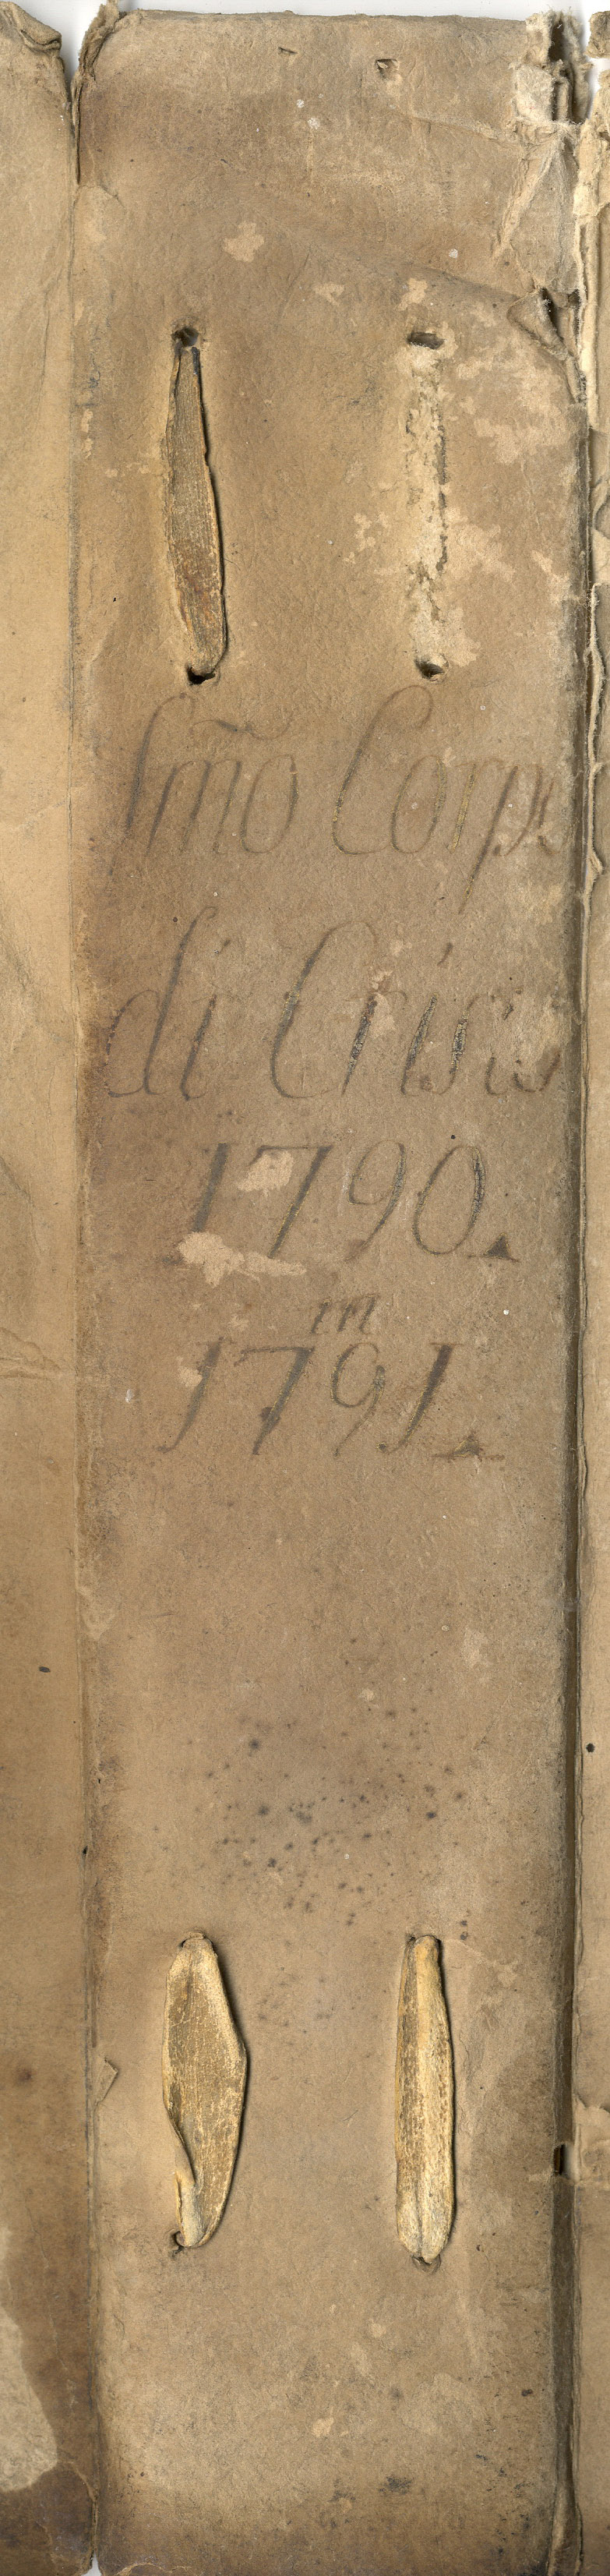 Smõ Corpo
di Cristo
1790.
in
1791.